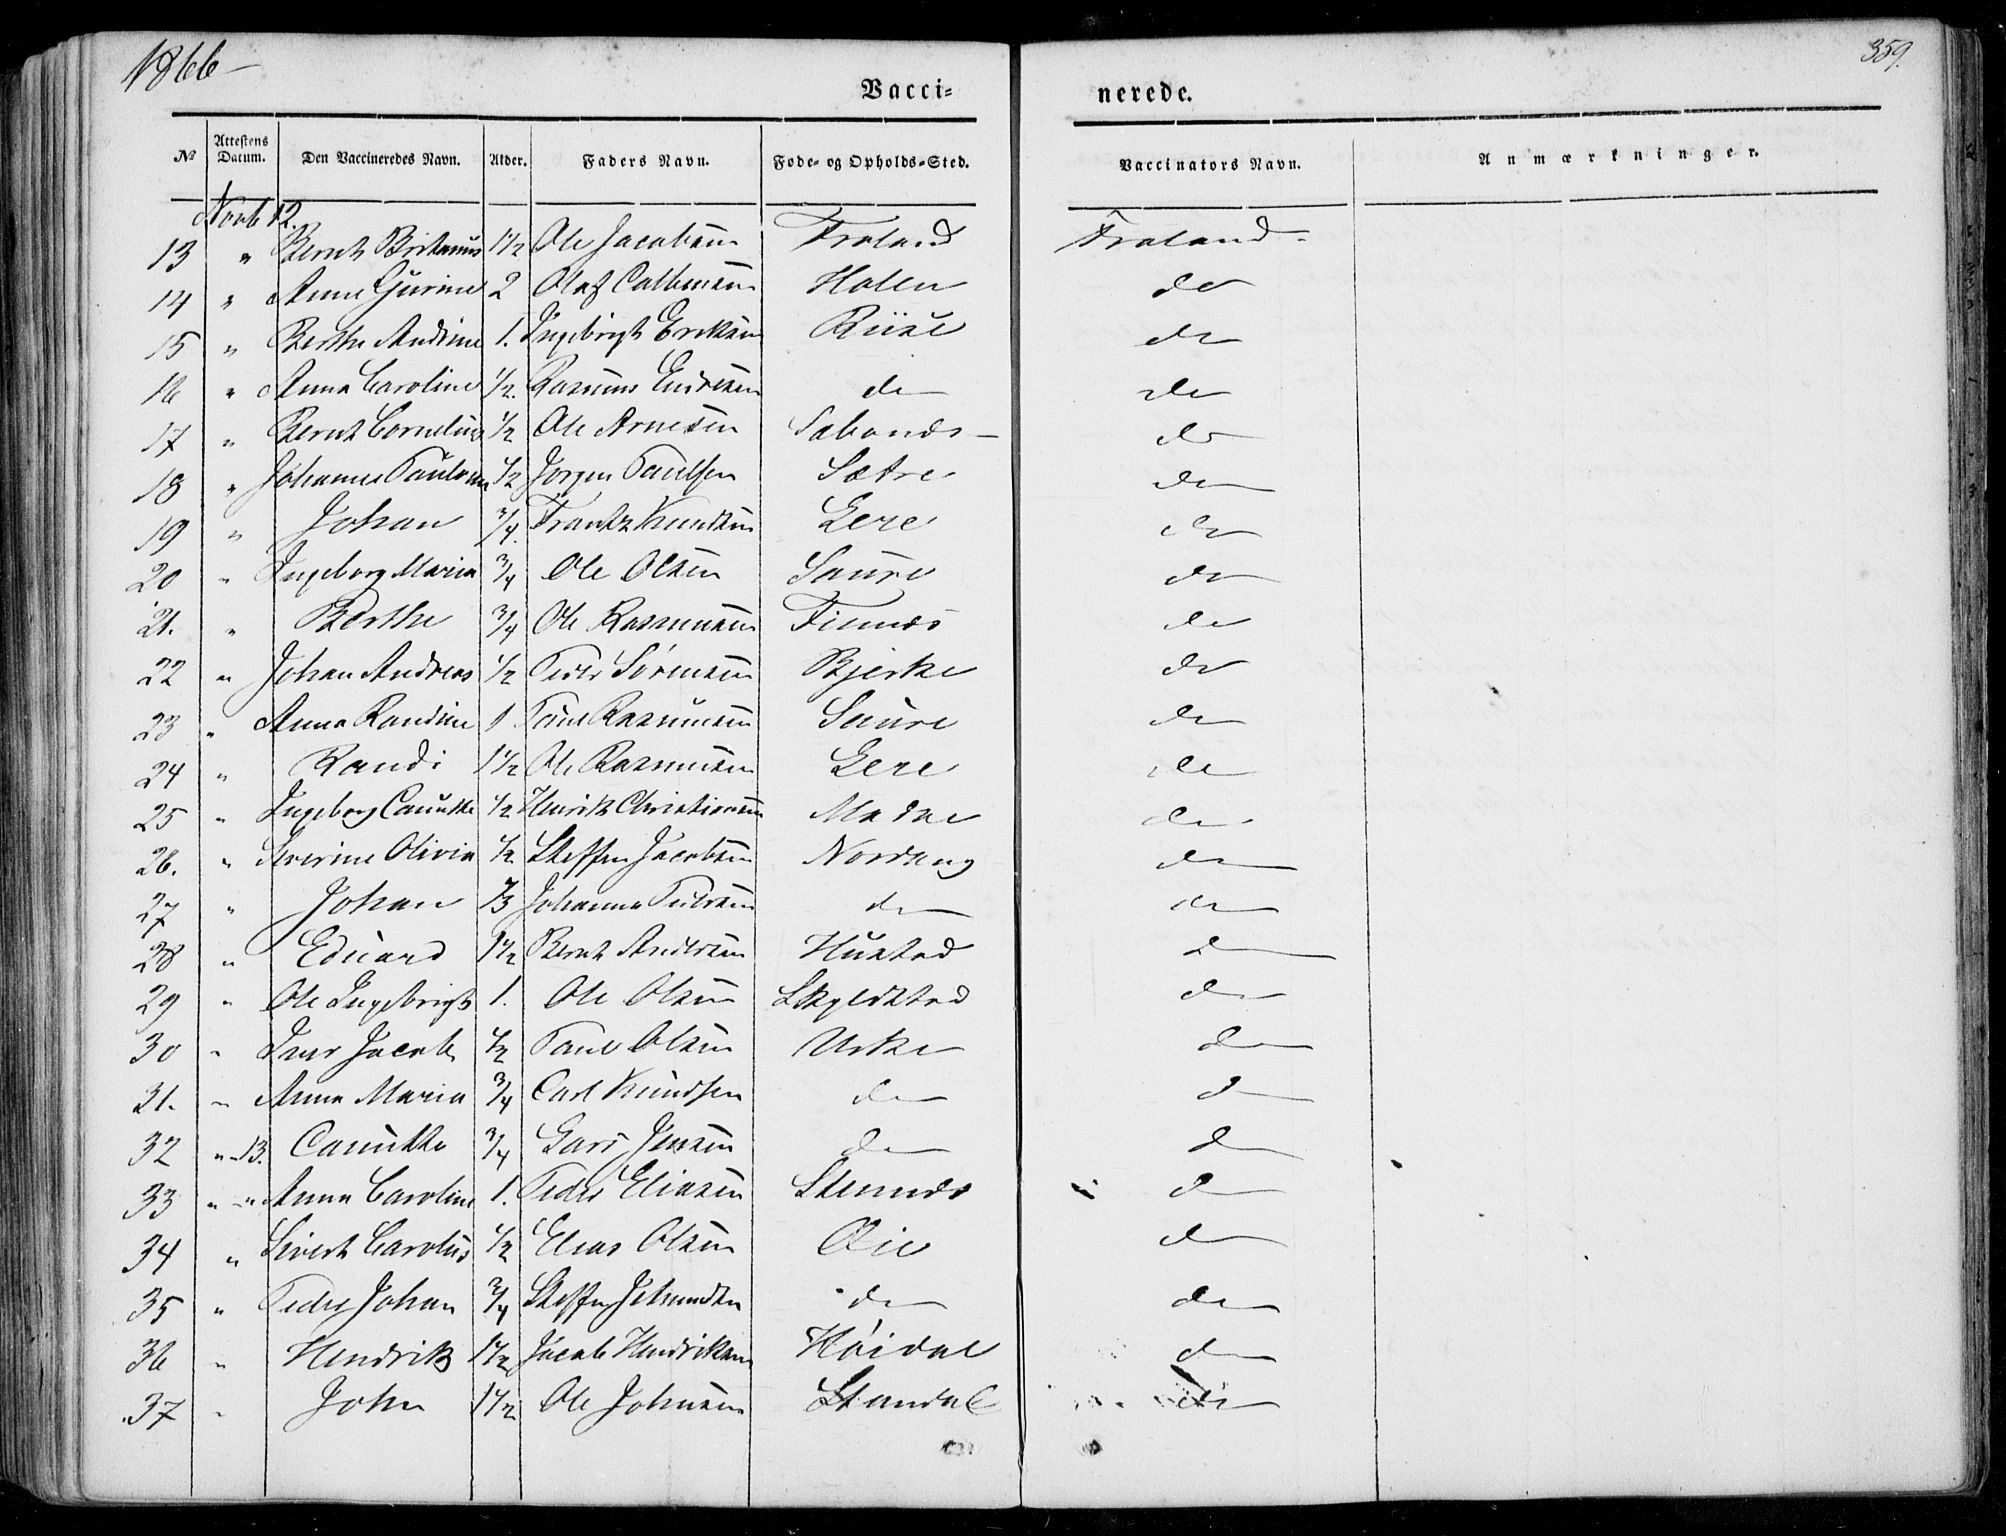 1866 -
359.
Vacci= nerede.
No Attestens Datum. Den Vaccineredes Navn. Alder. Faders Navn. Føde- og Opholds-Sted. Vaccinators Navn. Anmærkninger.
Novb 12.
13 " Bernt 1 1/2 Ole Jacobsen Froland Froland -
14 " Anne Gurine 2 Olaf Holen do
15 " Berthe Andrine 1. Ingebrigt Eriksen Riise do
16 " Anna Caroline 1/2. Rasmus Endresen do do
17 " Bernt Cornelius 1/2 Ole Arnesen Sabonds - do
18 " Johannes 1/2 Jørgen Paulsen Sætre do
19 " Johan 3/4. Frantz Knudsen Lere do
20 " Ingeborg Maria 3/4 Ole Olsen Saure do
21. " Berthe 3/4 Ole Rasmussen Finnes do
22 " Johan Andreas 1/2 Peder Sørensen Bjerke do
23 " Anna Randine 1 Paul Rasmussen Saure do
24 " Randi 1 1/2 Ole Rasmussen Lere do
25 " Ingeborg Canutte 1/2 Henrik Christiansen do
26. " Severine Olivia 1/2 Steffen Jacobsen Nordang do
27 " Johan Johannes do do
28 " Eduard 1 1/2 Bernt Andersen Hustad do
29 " Ole Ingebrigt 1. Ole Olsen Skyldstad do
30 " Iver Jacob 1/2 Paul Olsen Urke do
31. " Anna Maria 3/4 Carl Knudsen do do
32 " - 13. Canutte 3/4 Lars Jensen do do
33 " - " Anna Caroline 1. Peder Eliasen Stennes do
34 " Sivert Carolus 1/2 Elias Olsen Øie do
35 " Peder Johan 3/4 Steffen do do
36 " Hendrik 1 1/2 Jacob Hendriksen Høidal do
37 " John 1 1/2 Ole Johnsen Standal do